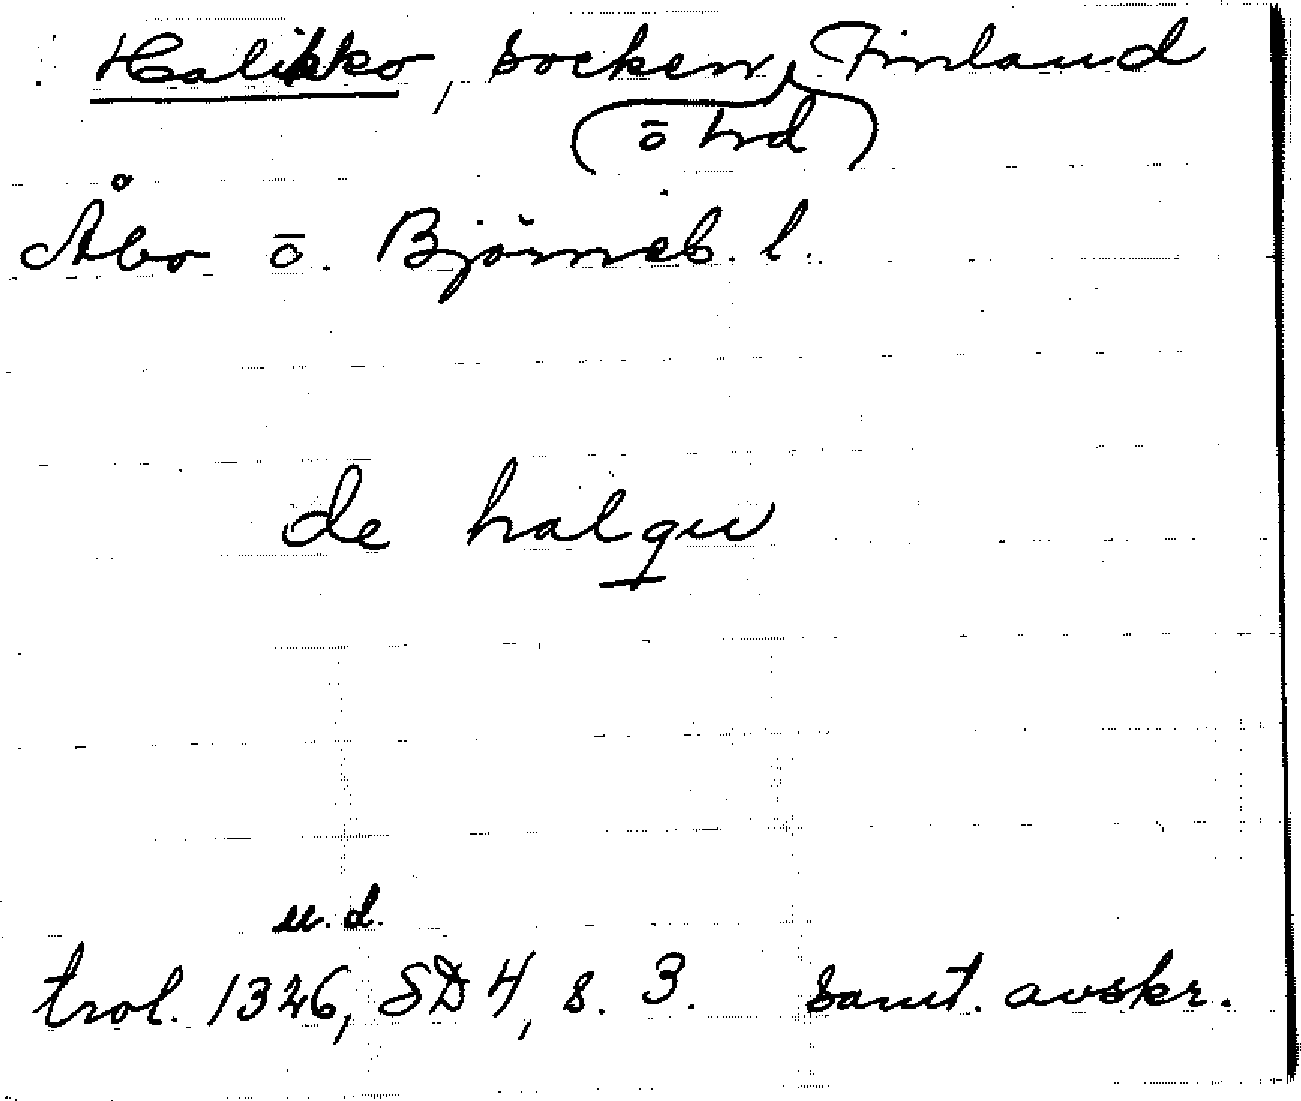 Halikko, socken, Finland
(ō hrd)
Åbo ō. Björneb. l.
de halqu
u. d.
trol. 1326, SD 4, s. 3. samt. avskr.